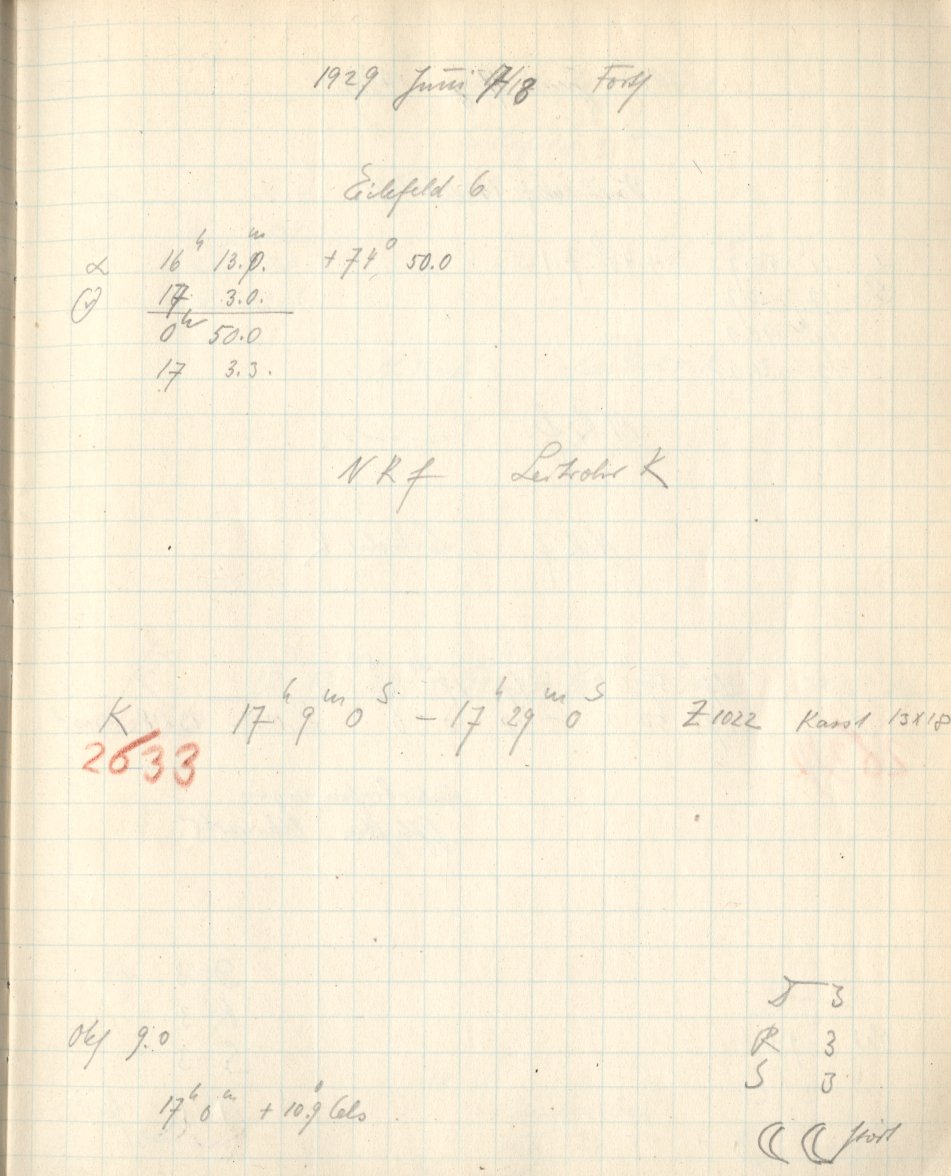 1929 Juni 17/18 Forts
Eichfeld 6
α 16ʰ 13.0ᵐ + 74° 50.0
17 3.0.
0ʰ 50.0
17 3.3.
N R f Leitrohr K
K 17ʰ 9ᵐ 0ˢ – 17ʰ 29ᵐ 0ˢ Z 1022 Kass 1 13x18
2633
D 3
Okf 9.0 R 3
S 3
17ʰ 0ᵐ + 10.°9 Cels
stört